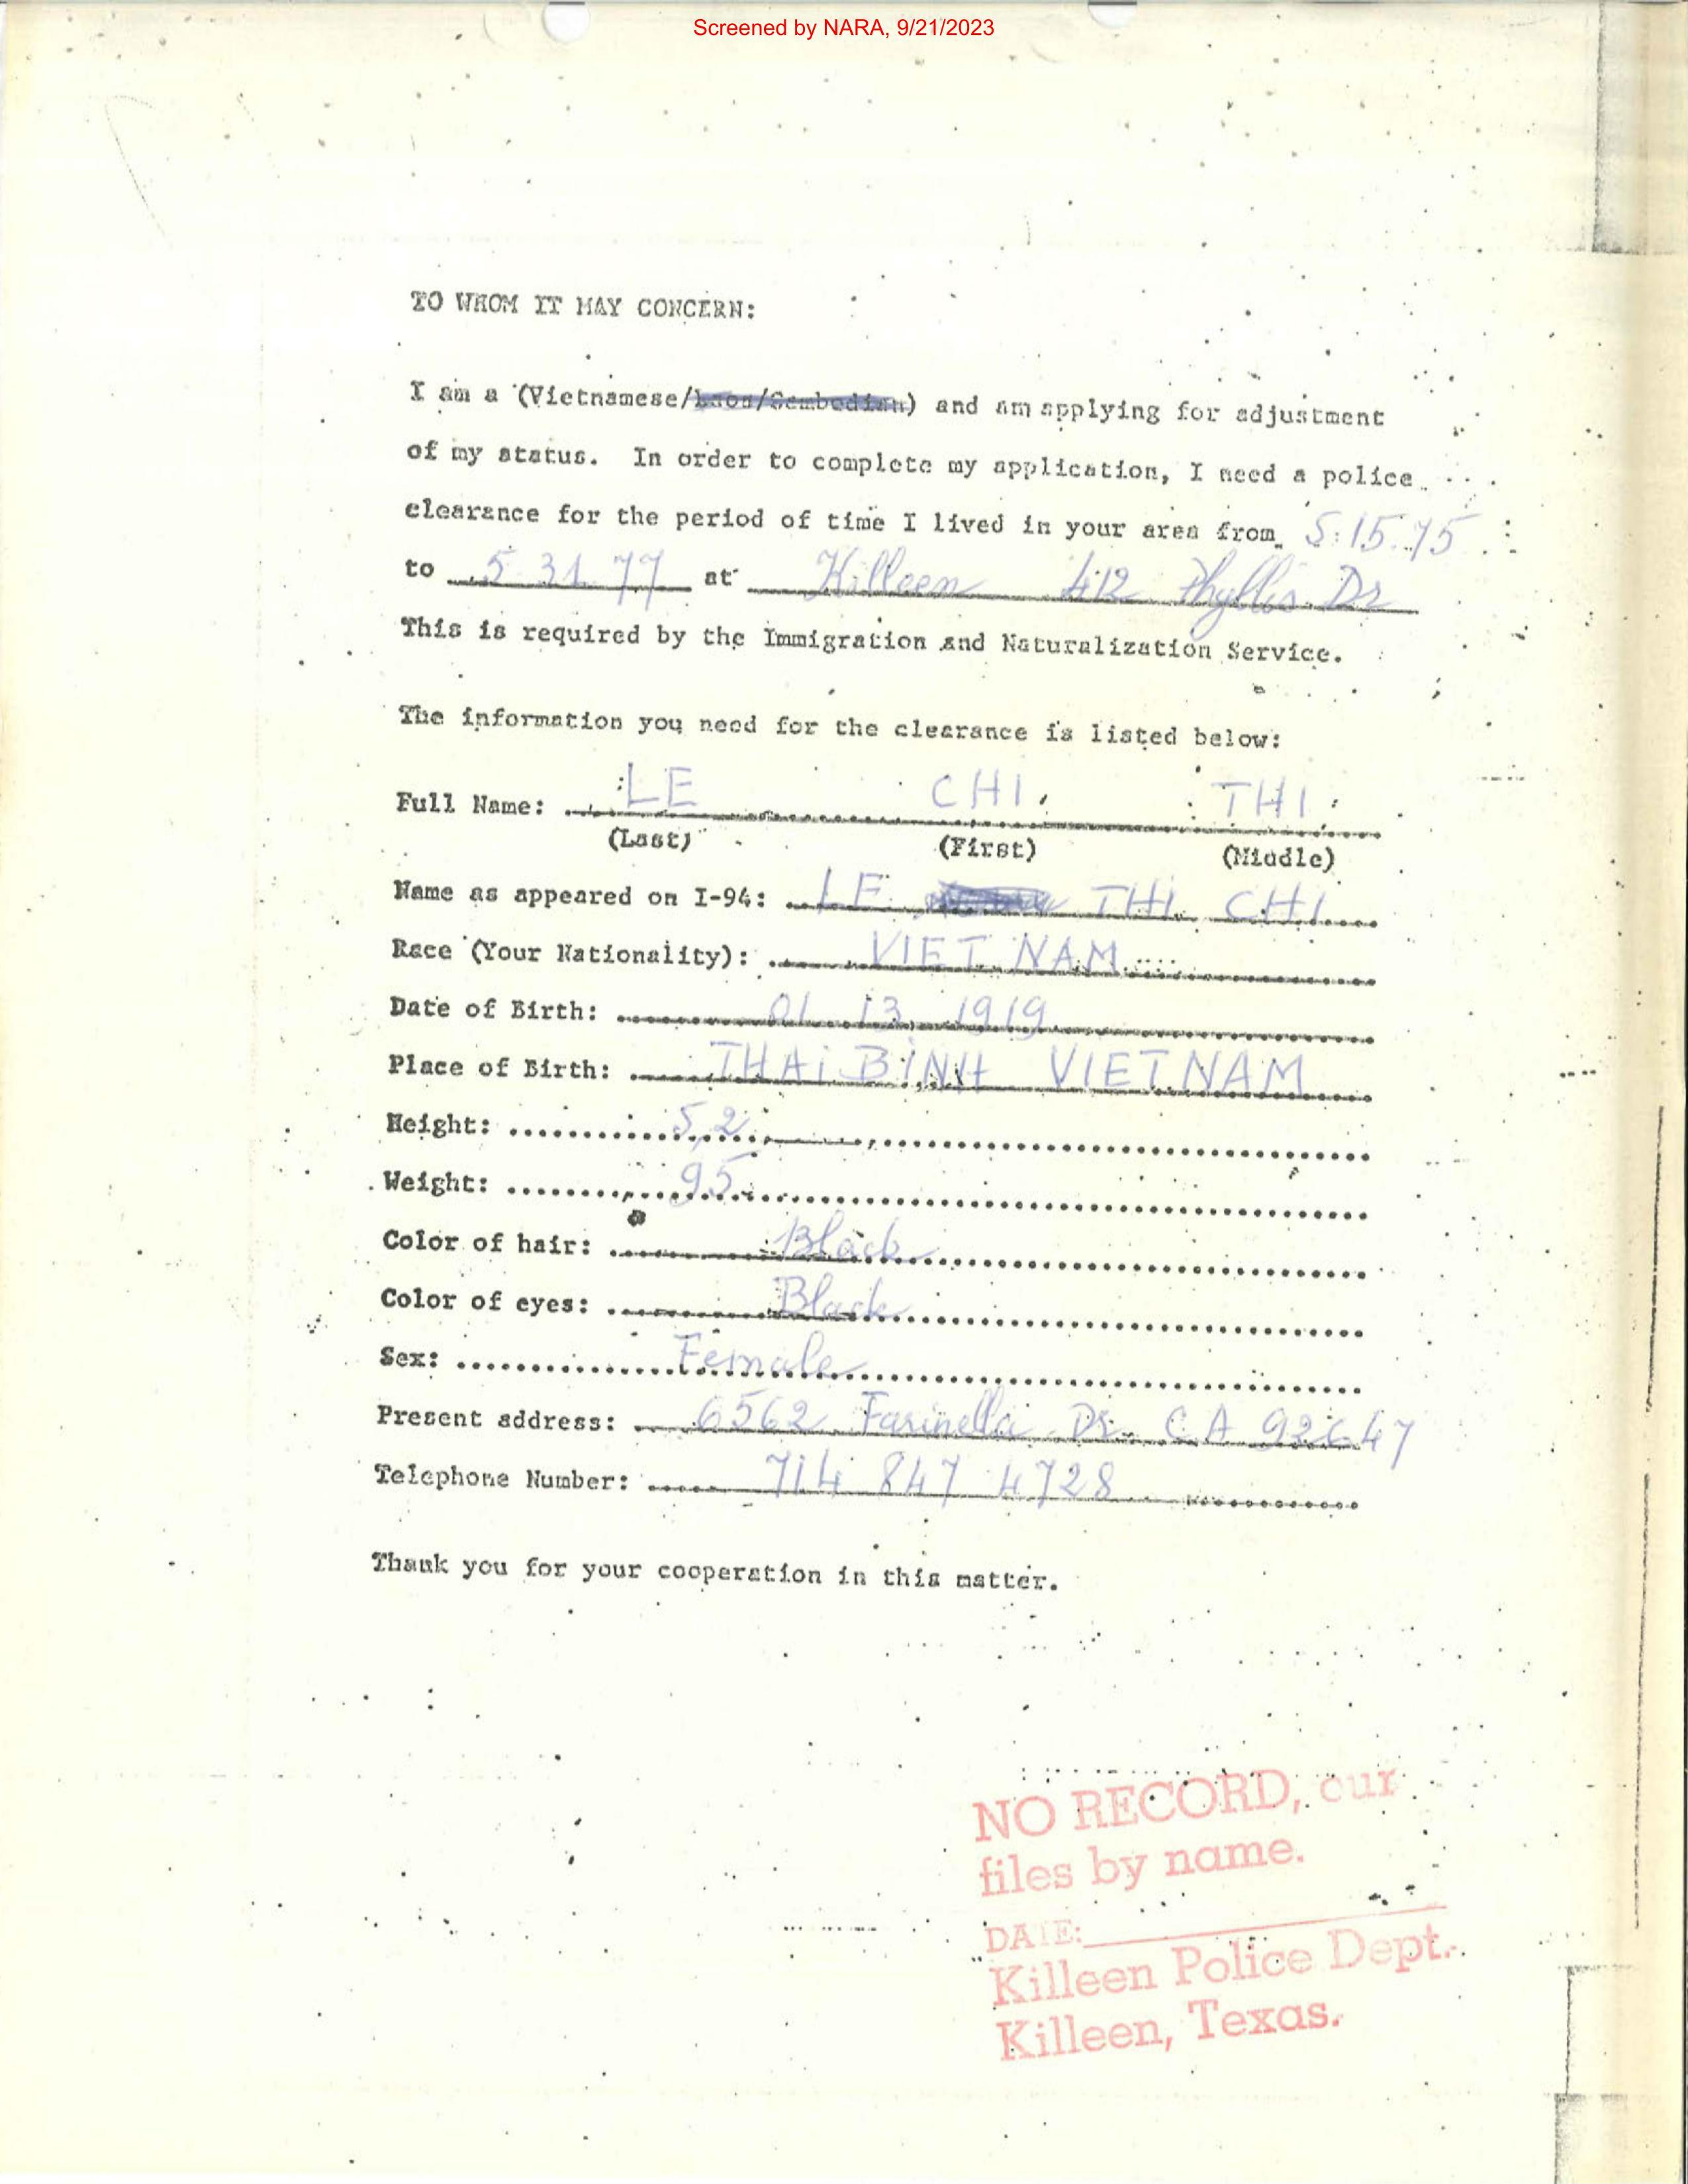 Screened by NARA, 9/21/2023
TO WHOM IT MAY CONCERN:
I am a (Vietnamese/Laos/Cambodian) and am applying for adjustment
of my status. In order to complete my application, I need a police
clearance for the period of time I lived in your area from 5.15.75
to 5 31 77 at Killeen 412 Phyllis Dr
This is required by the Immigration and Naturalization Service.
The information you need for the clearance is listed below:
Full Name: LE CHI THI
(Last) (First) (Middle)
Name as appeared on I-94: LE THI CHI
Race (Your Nationality): VIET NAM
Date of Birth: 01 13 1919
Place of Birth: THAI BINH VIETNAM
Height: 5,2
Weight: 95
Color of hair: Black
Color of eyes: Black
Sex: Female
Present address: 6562 Farinella Dr. CA 92647
Telephone Number: 714 847 4728
Thank you for your cooperation in this matter.
NO RECORD, our
files by name.
DATE:
Killeen Police Dept.
Killeen, Texas.